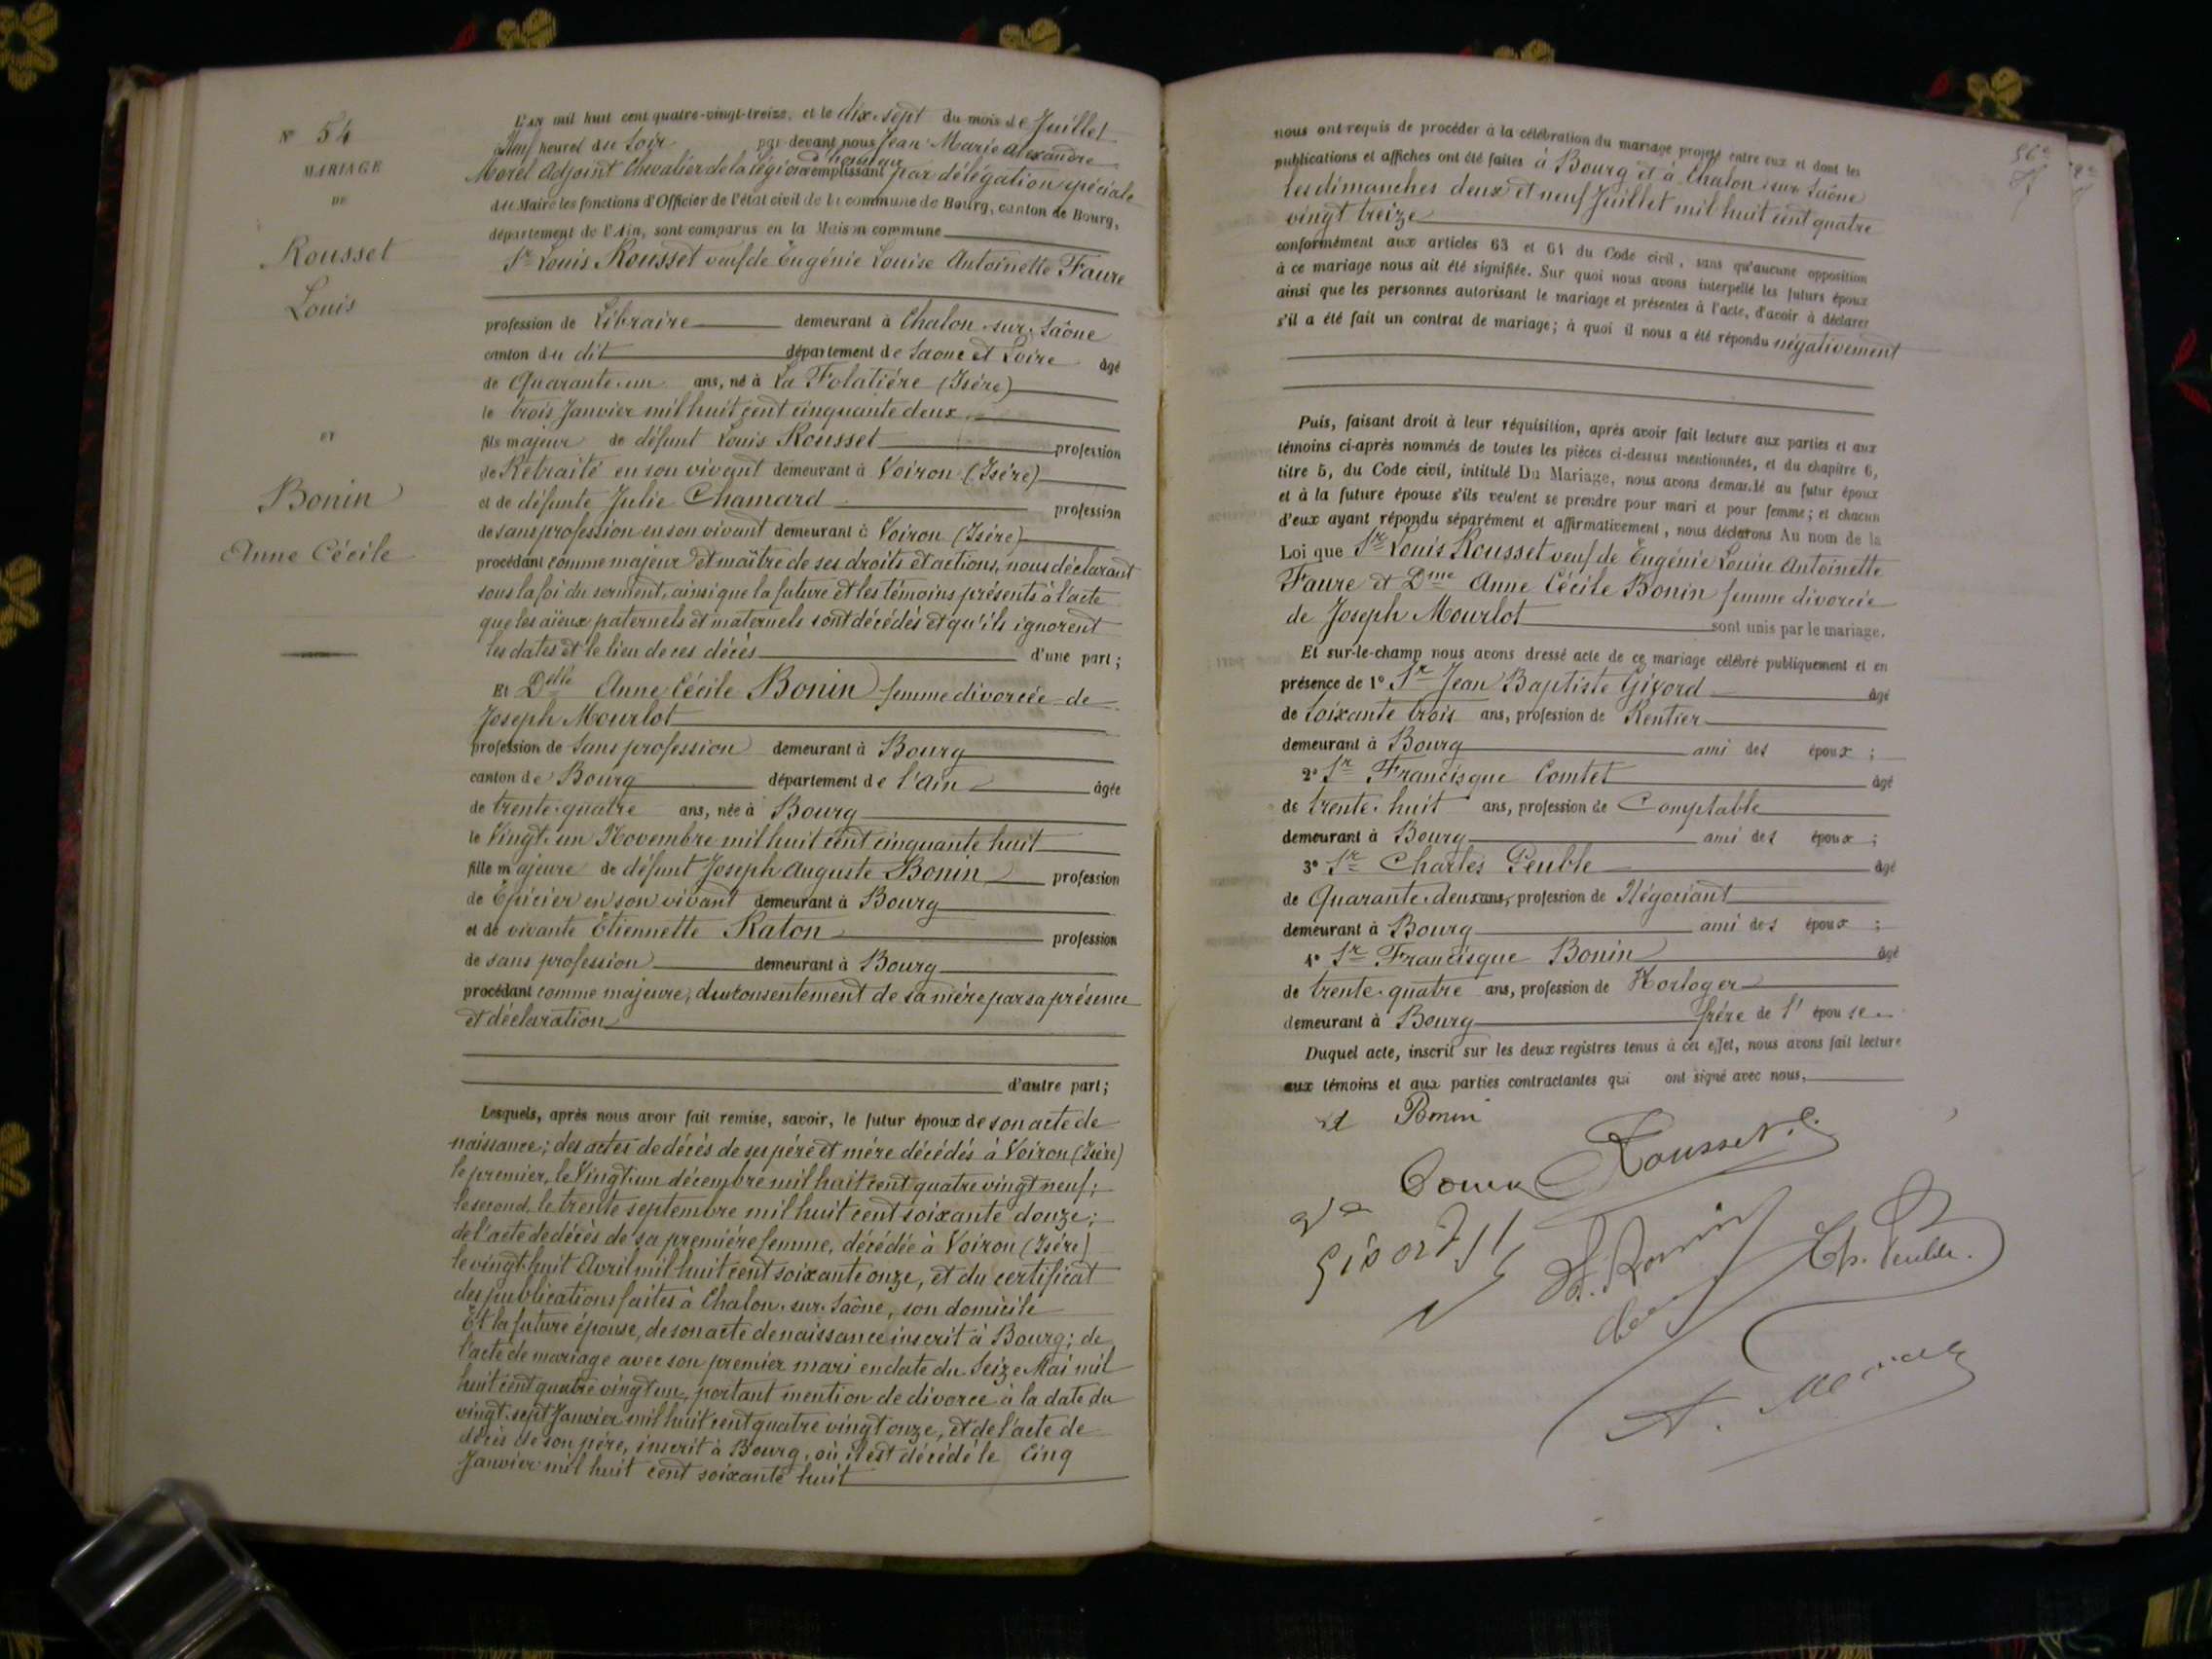 N° 54
MARIAGE
DE
Rousset
Louis
ET
Bonin
Anne Cécile
L'AN mil huit cent quatre-vingt-treize, et le dix-sept du mois de Juillet
Neuf heures du Soir par-devant nous Jean Marie Alexandre
Morel Adjoint Chevalier de la Légion d'honneur remplissant par délégation spéciale
du Maire les fonctions d'Officier de l'état civil de la commune de Bourg, canton de Bourg,
département de l'Ain, sont comparus en la Maison commune
Sr Louis Rousset veuf de Eugénie Louise Antoinette Faure
profession de Libraire demeurant à Chalon-sur-Saône
canton du dit département de Saone et Loire âgé
de Quarante-un ans, né à La Folatière (Isère)
le trois Janvier mil huit cent cinquante deux
fils majeur de défunt Louis Rousset profession
de Retraité en son vivant demeurant à Voiron (Isère)
et de défunte Julie Chamard profession
de sans profession en son vivant demeurant à Voiron (Isère)
procédant comme majeur et maître de ses droits et actions, nous déclarant
sous la foi du serment, ainsi que la future et les témoins présents à l'acte
que les aïeux paternels et maternels sont décédés et qu'ils ignorent
les dates et le lieu de ces décès d'une part;
Et Delle Anne Cécile Bonin femme divorcée de
Joseph Mourlot
profession de Sans profession demeurant à Bourg
canton de Bourg département de l'Ain âgée
de trente-quatre ans, née à Bourg
le Vingt-un Novembre mil huit cent cinquante huit
fille majeure de défunt Joseph Auguste Bonin profession
de Epicier en son vivant demeurant à Bourg
et de vivante Étiennette Raton profession
de sans profession demeurant à Bourg
procédant comme majeure, du consentement de sa mère par sa présence
et déclaration
d'autre part;
Lesquels, après nous avoir fait remise, savoir, le futur époux de son acte de
naissance; des actes de décès de ses père et mère décédés à Voiron (Isère)
le premier, le Vingt-un décembre mil huit cent quatre vingt neuf;
le second, le trente septembre mil huit cent soixante douze;
de l'acte de décès de sa première femme, décédée à Voiron (Isère)
le vingt-huit Avril mil huit cent soixante onze, et du certificat
des publications faites à Chalon-sur-Saône, son domicile
Et la future épouse, de son acte de naissance inscrit à Bourg; de
l'acte de mariage avec son premier mari en date du Seize Mai mil
huit cent quatre vingt un, portant mention de divorce à la date du
vingt-sept Janvier mil huit cent quatre vingt onze, et de l'acte de
décès de son père, inscrit à Bourg, où il est décédé le Cinq
Janvier mil huit cent soixante huit
56e
nous ont requis de procéder à la célébration du mariage projeté entre eux et dont les
publications et affiches ont été faites à Bourg et à Chalon sur Saône
les dimanches deux et neuf Juillet mil huit cent quatre
vingt treize
conformément aux articles 63 et 64 du Code civil, sans qu'aucune opposition
à ce mariage nous ait été signifiée. Sur quoi nous avons interpellé les futurs époux
ainsi que les personnes autorisant le mariage et présentes à l'acte, d'avoir à déclarer
s'il a été fait un contrat de mariage; à quoi il nous a été répondu négativement
Puis, faisant droit à leur réquisition, après avoir fait lecture aux parties et aux
témoins ci-après nommés de toutes les pièces ci-dessus mentionnées, et du chapitre 6,
titre 5, du Code civil, intitulé Du Mariage, nous avons demandé au futur époux
et à la future épouse s'ils veulent se prendre pour mari et pour femme; et chacun
d'eux ayant répondu séparément et affirmativement, nous déclarons Au nom de la
Loi que Sr Louis Rousset veuf de Eugénie Louise Antoinette
Faure et Dme Anne Cécile Bonin femme divorcée
de Joseph Mourlot sont unis par le mariage.
Et sur-le-champ nous avons dressé acte de ce mariage célébré publiquement et en
présence de 1° Sr Jean Baptiste Givord âgé
de Soixante trois ans, profession de Rentier
demeurant à Bourg ami des époux;
2° Sr Francisque Comtet âgé
de trente-huit ans, profession de Comptable
demeurant à Bourg ami des époux;
3° Sr Charles Peuble âgé
de Quarante-deux ans, profession de Négociant
demeurant à Bourg ami des époux;
4° Sr Francisque Bonin âgé
de trente-quatre ans, profession de Horloger
demeurant à Bourg frère de l'épouse
Duquel acte, inscrit sur les deux registres tenus à cet effet, nous avons fait lecture
aux témoins et aux parties contractantes qui ont signé avec nous.
Bonin
Rousset L.
Givord
F. Bonin
Ch. Peuble.
A. Morel